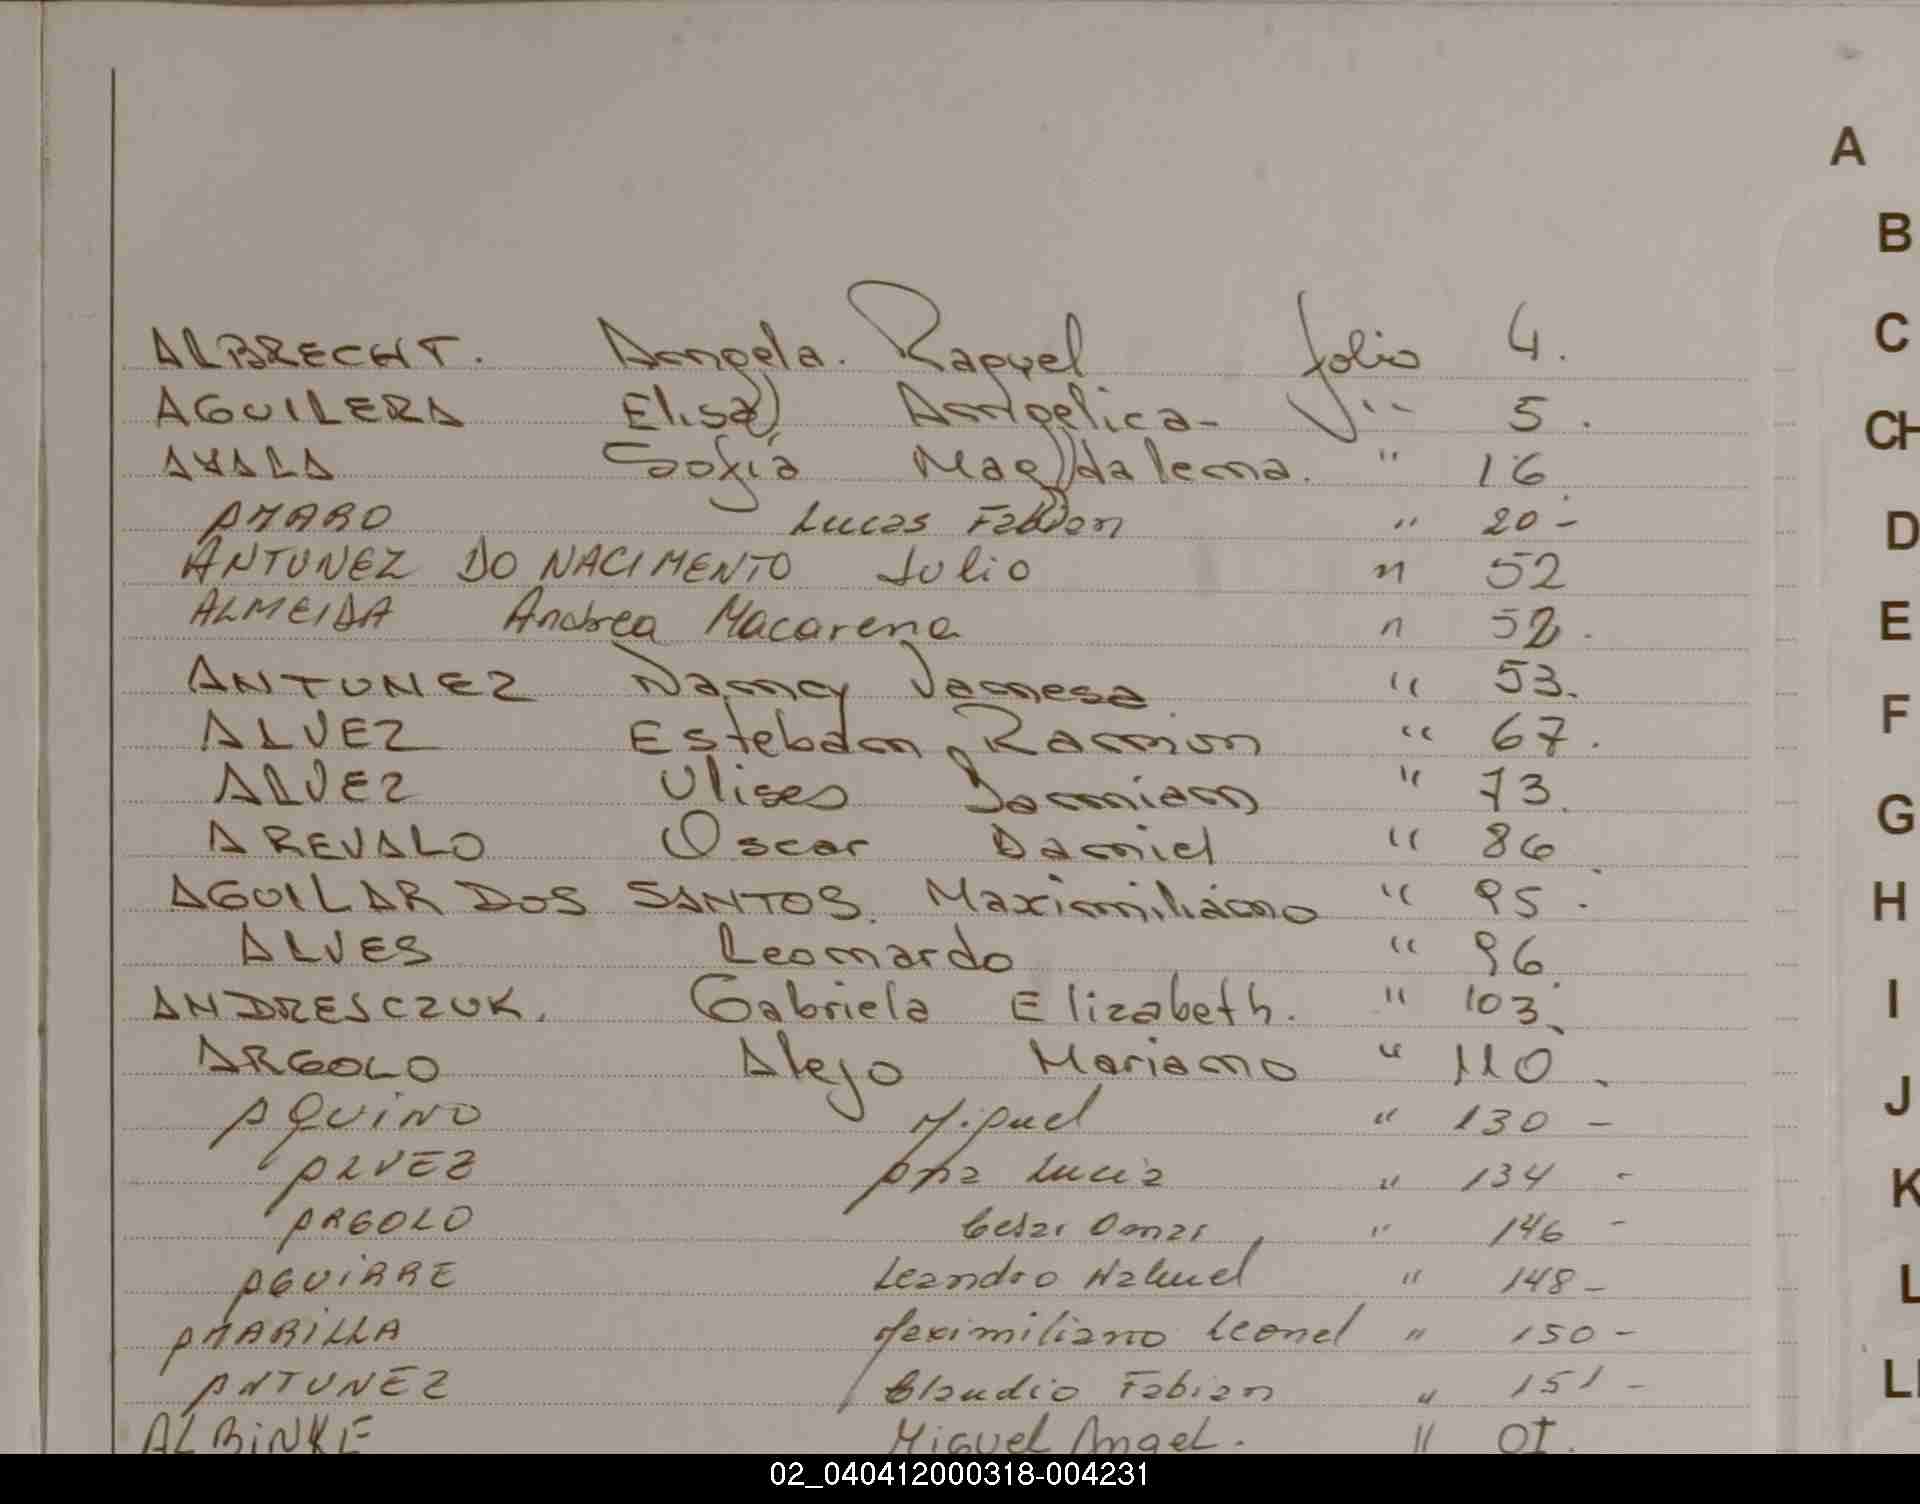 ALBRECHT. Angela. Raquel folio 4.
AGUILERA Elisa Angelica- " 5.
AYALA Sofia Magdalena. " 16.
AMARO Lucas Fabian " 20-
ANTUNEZ DO NACIMENTO Julio " 52
ALMEIDA Andrea Macarena " 52.
ANTUNEZ Nancy Vanesa " 53.
ALVEZ Esteban Ramon " 67.
ALVEZ Ulises Damian " 73.
AREVALO Oscar Daniel " 86.
AGUILAR DOS SANTOS. Maximiliano " 95.
ALVES Leonardo " 96.
ANDRESCZUK. Gabriela Elizabeth. " 103.
ARGOLO Alejo Mariano " 110.
AQUINO Miguel " 130 -
ALVEZ Ana Lucia " 134 -
ARGOLO Cesar Omar " 146 -
AGUIRRE Leandro Nahuel " 148-
AMARILLA Maximiliano Leonel " 150-
ANTUNEZ Claudio Fabian " 151-
ALBINKE Miguel Angel. "
A
B
C
CH
D
E
F
G
H
I
J
K
L
02_040412000318-004231